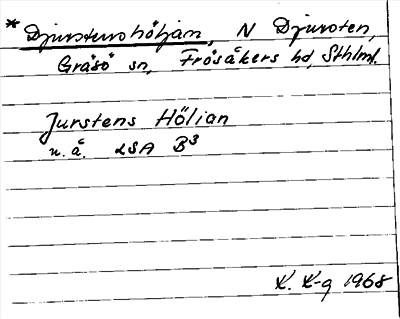 * Djurstenshöljan, N Djursten,
Gräsö sn, Frösåkers hd, Sthlml.
Jurstens Hölian
u.å. LSA B3
K. K-g 1968